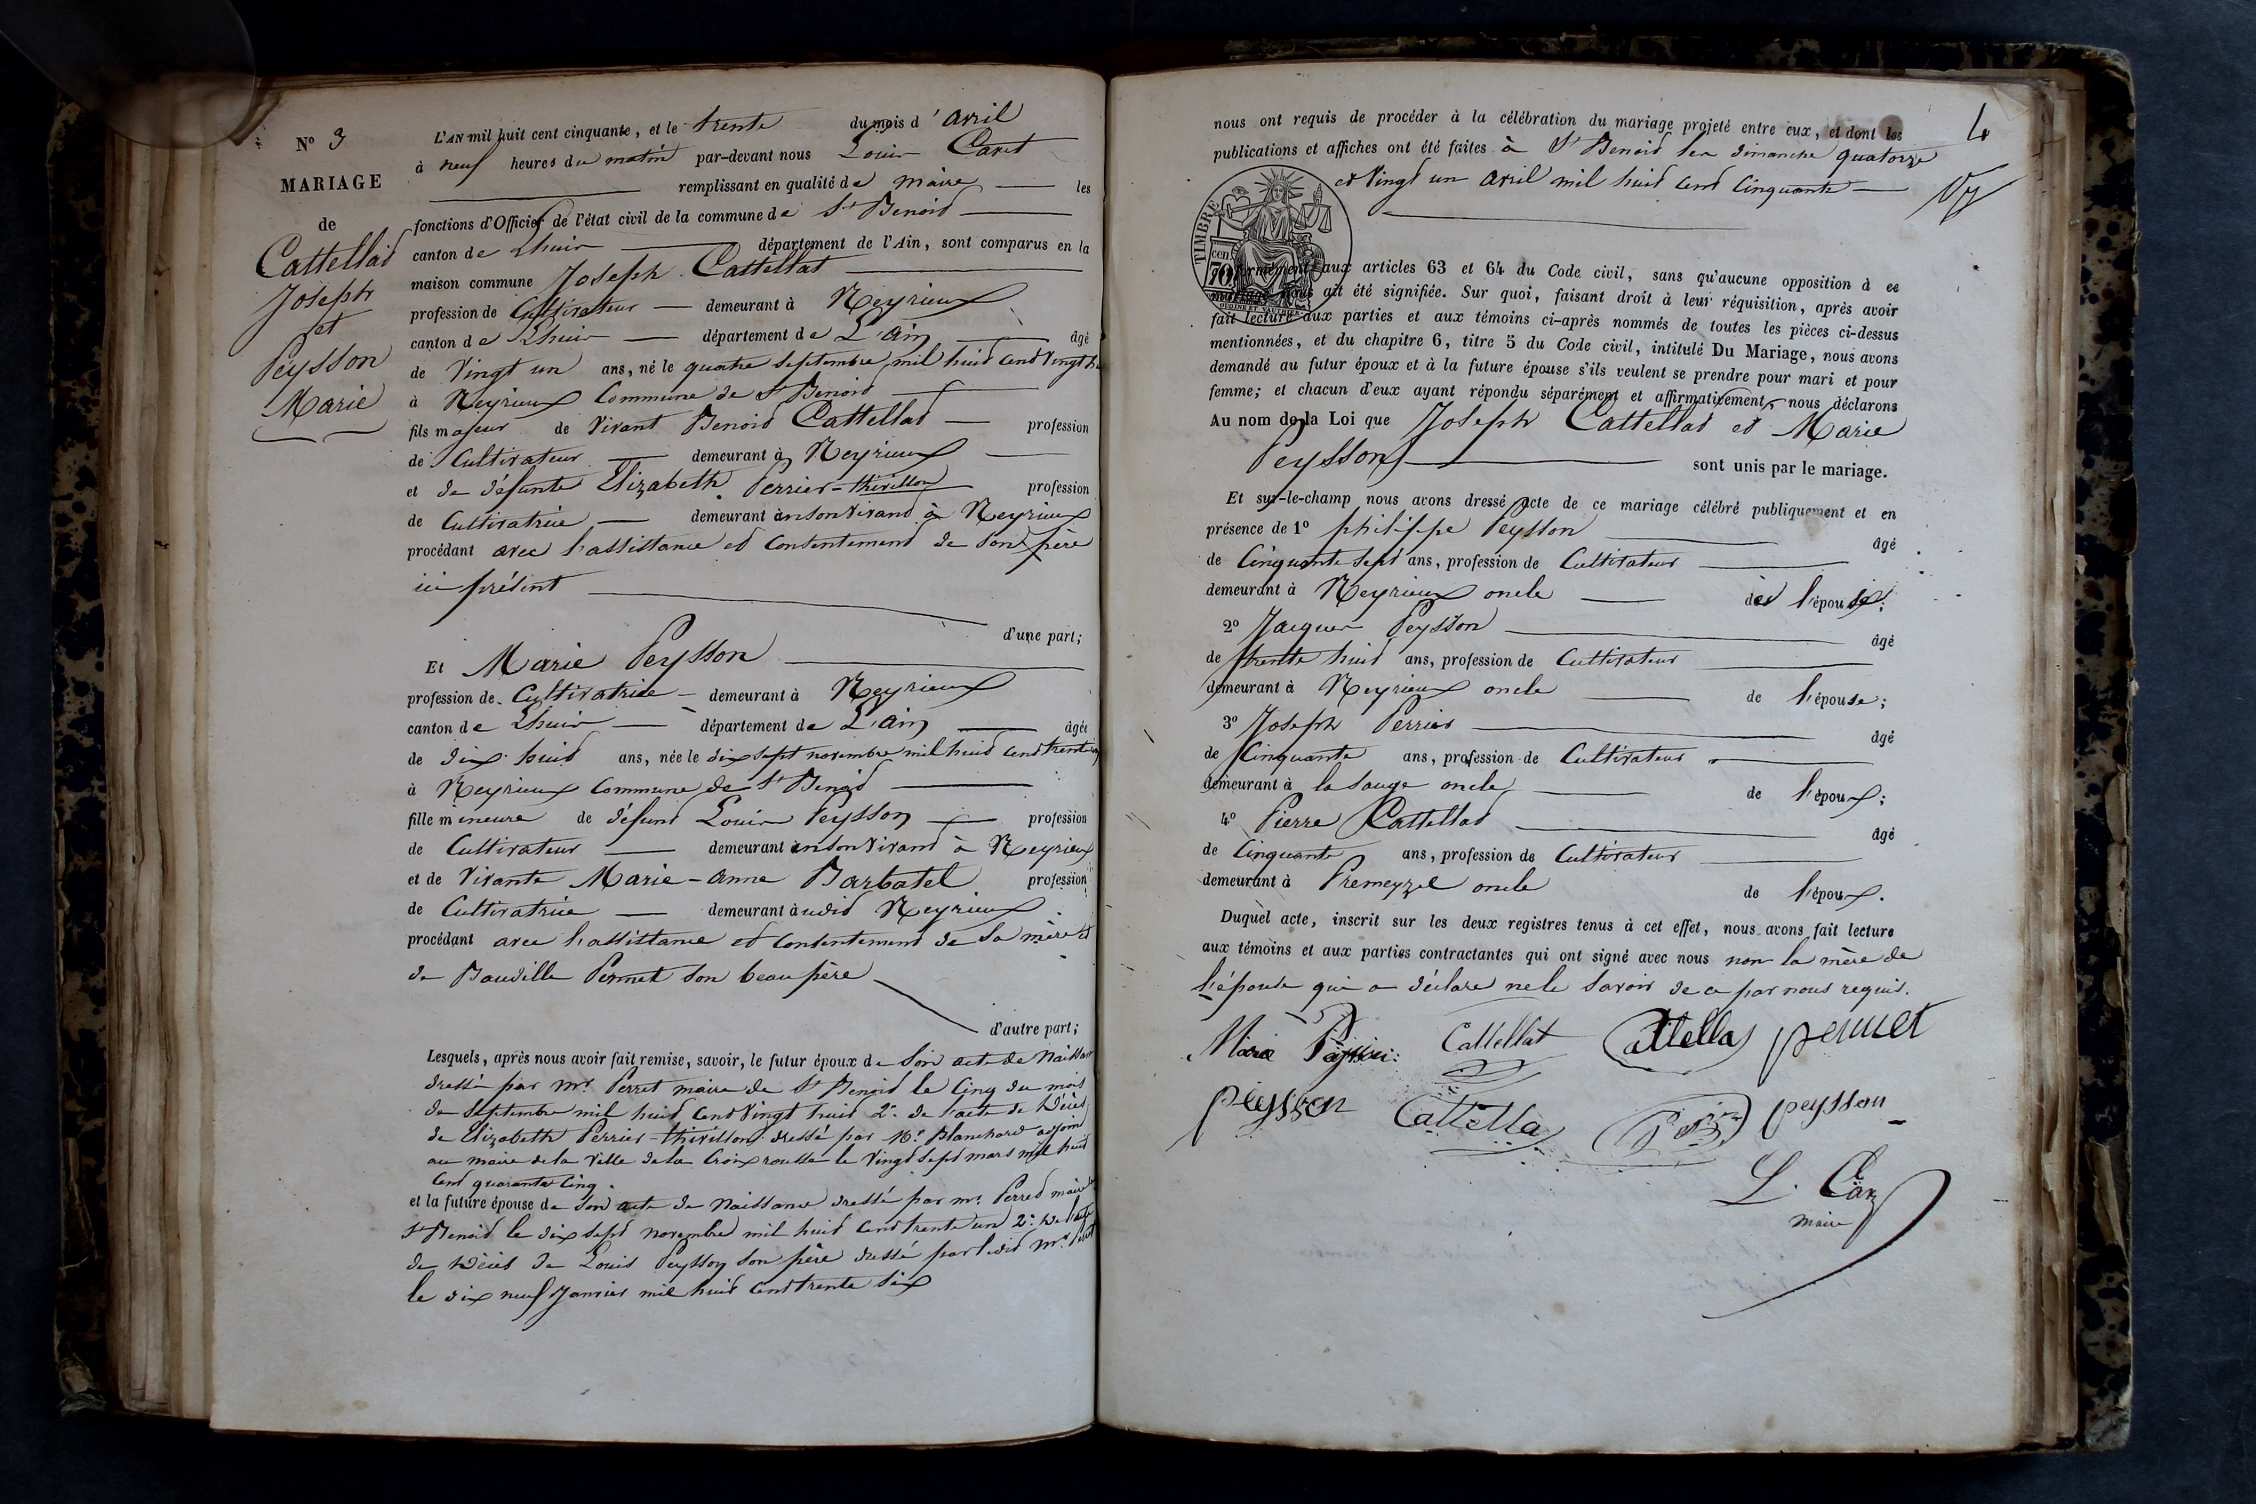 No 3
MARIAGE
de
Cattellad
Joseph
et
Peysson
Marie
L'AN mil huit cent cinquante, et le trente du mois d'avril
à neuf heures du matin par-devant nous Louis
remplissant en qualité de maire les
fonctions d'Officier de l'état civil de la commune de St Benoid
canton de Lhuis département de l'Ain, sont comparus en la
maison commune Joseph Cattellat
profession de Cultivateur demeurant à Neyrieux
canton de Lhuis département de L'ain âgé
de Vingt un ans, né le quatre septembre mil huid cend vingt
à Neyrieux Commune de St Benoid
fils majeur de Vivant Benoid Cattellad profession
de Cultivateur demeurant à Neyrieux
et de défunte Elizabeth Perrier-thivillon profession
de Cultivatrice demeurant en son vivand à Neyrieux
procédant avec l'assistance ed consentemend de son père
ici présent
d'une part;
Et Marie Peysson
profession de Cultivatrice demeurant à Neyrieux
canton de Lhuis département de L'ain âgée
de dix huid ans, née le dix sept novembre mil huid cend trente
à Neyrieux Commune de St Benoid
fille mineure de défund Louis Peysson profession
de Cultivateur demeurant en son vivand à Neyrieux
et de Vivante Marie-anne Barbatel profession
de Cultivatrice demeurant audid Neyrieux
procédant avec l'assistance ed consentemend de sa mère et
de Baudille Permet son beau père
d'autre part;
Lesquels, après nous avoir fait remise, savoir, le futur époux de son acte de Naissance
dressé par mr Perret maire de St Benoid le Cinq du mois
de septembre mil huid cend vingt huid 2° de l'acte de Décès
de Elizabeth Perrier-thivillon dressé par Mr Blanchard adjoint
au maire de la Ville de la Croix rousse le Vingt sept mars mil huid
cend quarante cinq.
et la future épouse de son acte de Naissance dressé par mr Perred maire
St Benoid le dix sept novembre mil huid cend trente un 2° de l'acte
de Décès de Louis Peysson son père dressé par ledid mr Perret
le dix neuf Janvier mil huid cend trente six
4
nous ont requis de procéder à la célébration du mariage projeté entre eux, et dont les
publications et affiches ont été faites à St Benoid les dimanche quatorze
ed Vingt un avril mil huid cend Cinquante
TIMBRE
70 cen
conformément aux articles 63 et 64 du Code civil, sans qu'aucune opposition à ce
mariage nous ait été signifiée. Sur quoi, faisant droit à leur réquisition, après avoir
fait lecture aux parties et aux témoins ci-après nommés de toutes les pièces ci-dessus
mentionnées, et du chapitre 6, titre 5 du Code civil, intitulé Du Mariage, nous avons
demandé au futur époux et à la future épouse s'ils veulent se prendre pour mari et pour
femme; et chacun d'eux ayant répondu séparément et affirmativement, nous déclarons
Au nom de la Loi que Joseph Cattellad ed Marie
Peysson sont unis par le mariage.
Et sur-le-champ nous avons dressé acte de ce mariage célébré publiquement et en
présence de 1° philippe Peysson âgé
de Cinquante sept ans, profession de Cultivateur
demeurant à Neyrieux oncle de l'épouse;
2° Jacques Peysson âgé
de trente huid ans, profession de Cultivateur
demeurant à Neyrieux oncle de l'épouse;
3° Joseph Perrier âgé
de Cinquante ans, profession de Cultivateur
demeurant à la Sauge oncle de l'époux;
4° Pierre Cattellad âgé
de Cinquante ans, profession de Cultivateur
demeurant à Premeyzel oncle de l'époux.
Duquel acte, inscrit sur les deux registres tenus à cet effet, nous avons fait lecture
aux témoins et aux parties contractantes qui ont signé avec nous non la mère de
l'épouse qui a déclaré ne le savoir de ce par nous requis.
Cattellat Cattella permet
peysson Cattella peysson
maire